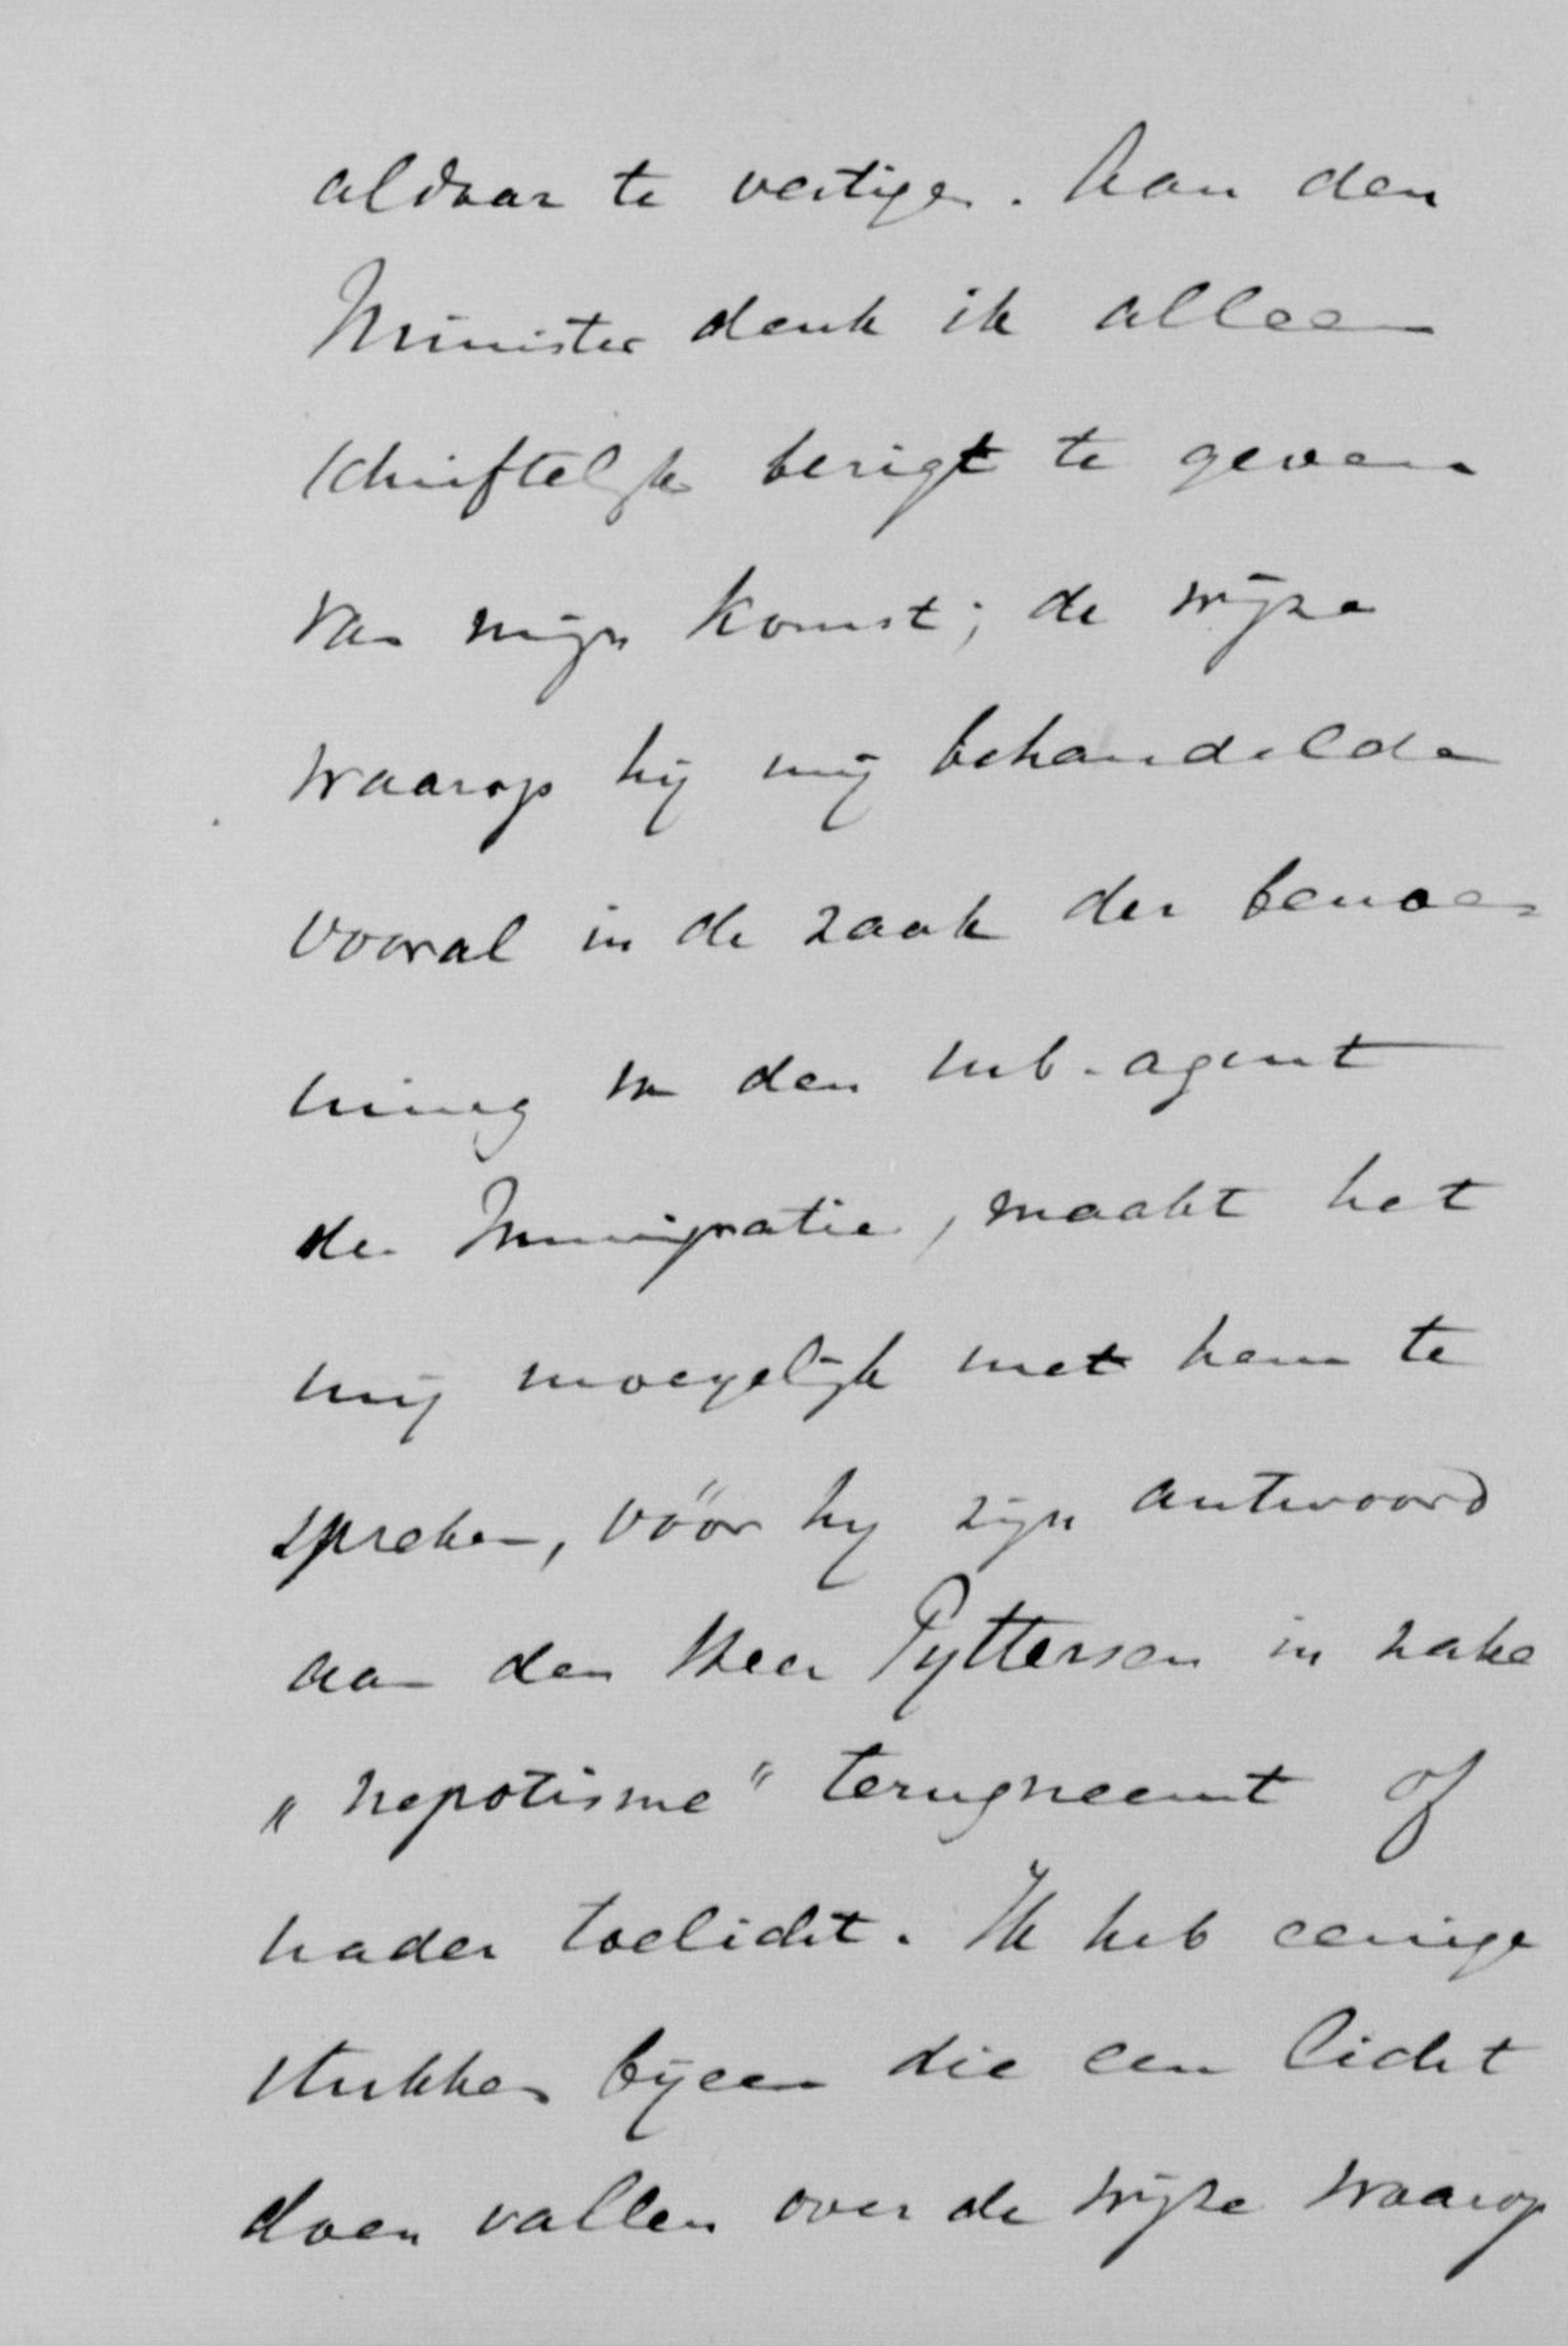 aldaar te vestigen. Aan den
Minister denk ik alleen
schriftelijk berigt te geven
van mijn komst; de wijze
waarop hij mij behandelde
vooral in de zaak der benoe-
ming van den sub-agent
der Immigratie, maakt het
mij moeyelijk met hem te
spreken, vóór hij zijn antwoord
aan den Heer Pyttersen in zake
„nepotisme" terugneemt of
nader toelicht. Ik heb eenige
stukken bijeen die een licht
doen vallen over de wijze waarop